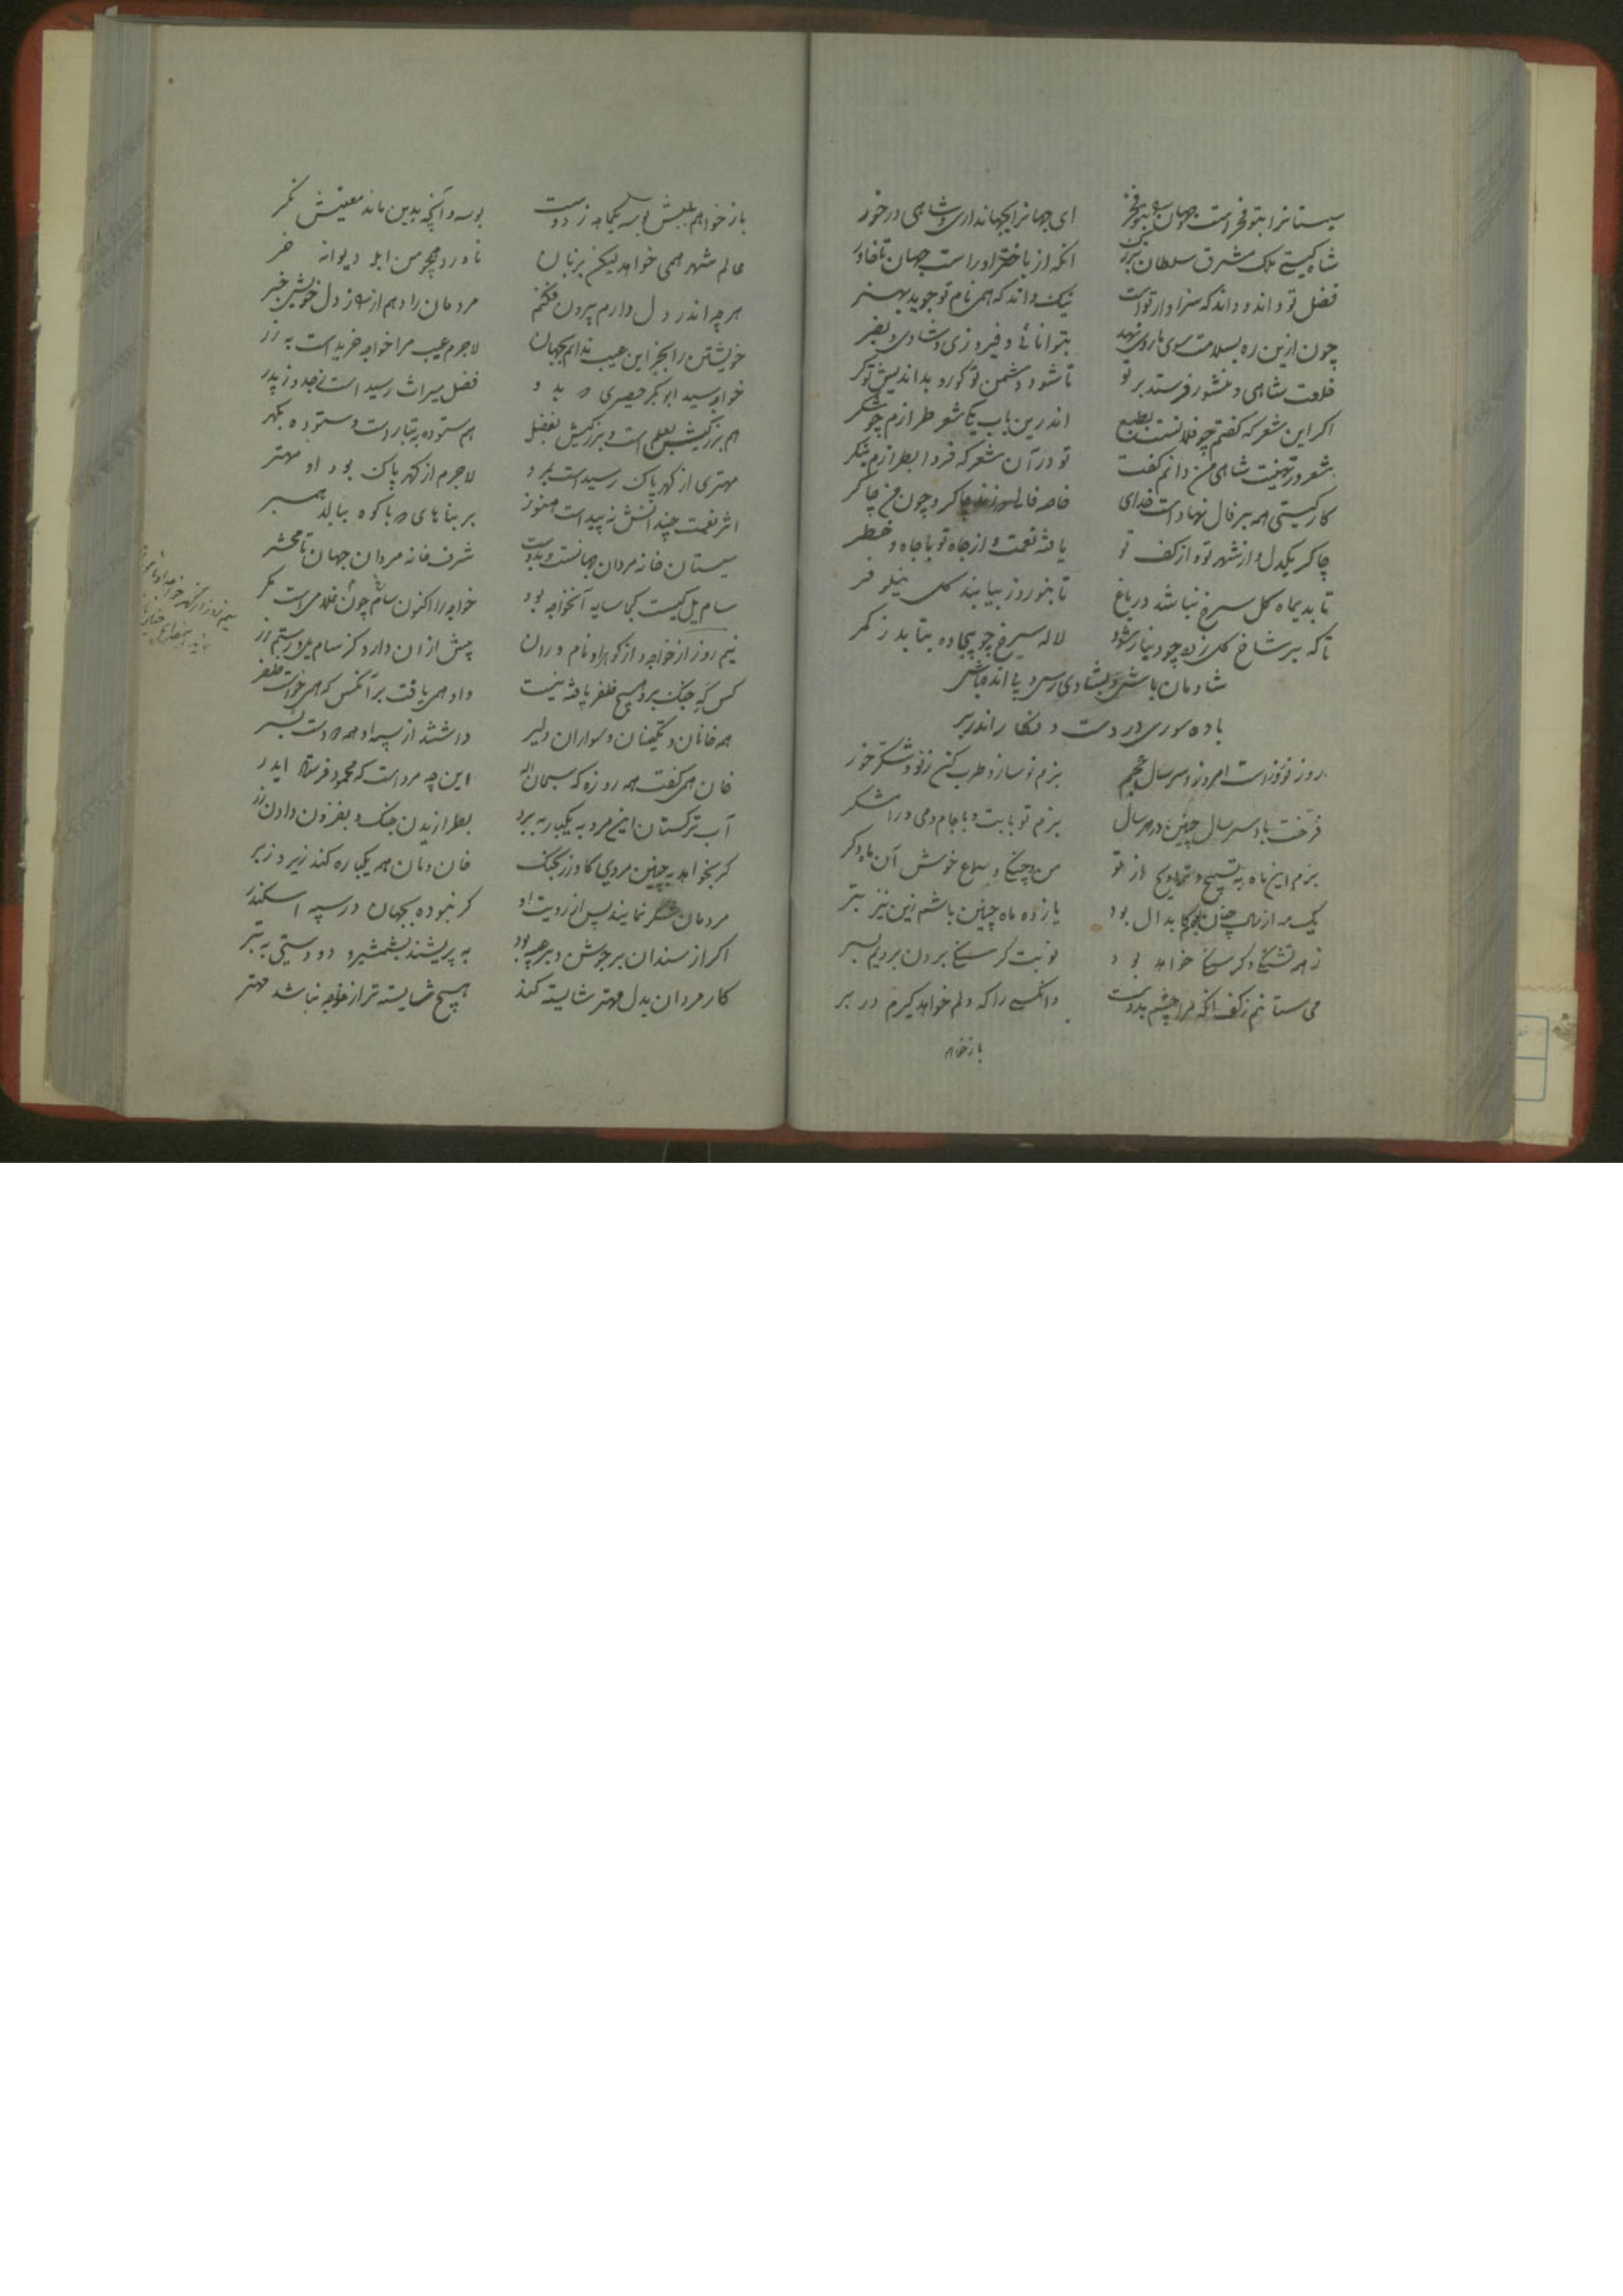 سیستانرا بتو فخرست جهان را بتو فخر ای جهانرا بجهانداری و شاهی درخور
شاه گیتی ملک مشرق سلطان بزرگ انکه از باختر اوراست جهان تا خاور
فضل تو داند و داند که سزاوار توات نیک داند که همی نام تو جوید بهنر
چون ازین ره بسلامت سوی او روی نهد بتوانائی و فیروزی و شادی و بفر
خلعت شاهی و منشور فرستد بر تو تا شود دشمن تو کور و بداندیش تو کر
اکر این شعر که کفتم چو فلانست بطبع اندرین باب یکی شعر طرازم چو شکر
شعر در تهنیت شاهی من دانم کفت تو در آن شعر که فردا بطرازم بنکر
کار گیتی همه بر فال نهاد است خدای خاصه فالی که زند چاکر و چون من چاکر
چاکر یکدل و از شهر تو و از کف تو یافته نعمت و از جاه تو با جاه و خطر
تا بدیماه کل سرخ نباشد در باغ تا بنوروز بیابند کل نیلوفر
تا که بر شاخ کل زرد چو دینار شود لاله سرخ چو بیجاده بتابد ز کمر
شادمان باش و بشادی رس و با انده باش
باده سوری در دست و نگار اندر بر
روز نوروزست امروز و سر سال عجم بزم نو ساز و طرب کن ز نو و شکر خور
فرخت باد سر سال چنین در هر سال بزم تو با بت و با جام و می و رامشکر
بزم این ماه به تسبیح و تراویح از تو من و چنک و سماع خوش آن ماه دکر
یک مه از سال چنین بودم کابدال بود یازده ماه چنین باشم زین نیز بتر
زهد تشنکی و کرسنکی خواهد بود نوبت کرسنکی بردن بردیم بسر
می ستانم ز کف انکه مرا چشم بدوست وانکسی را که دلم خواهد کیرم در بر
باز خواهم
باز خواهم بلبش بوسه یکماهه ز دوست بوسه و آنچه بدین ماند معنیش نکر
عالم شهر همی خواهد لیکن بزبان ناورد همچو من ابله دیوانه خر
هر چه اندر دل دارم بیرون فکنم مردمان را دهم از راز دل خویش خبر
خویشتن را بجز این عیب ندانم بجهان لاجرم عیب مرا خواجه خریدست به زر
خواجه سید ابوبکر حصیری که بدو فضل میراث رسید است ز جد و ز پدر
هم بزرکیش بعلم است و بزرکیش بفضل هم ستوده به تبار است و ستوده بکهر
مهتری از کهر پاک رسیدست بمرد لاجرم از کهر پاک بود او مهتر
اثر نعمت چندانش نه پیداست هنوز بر بناهای که با کوه ببالد به سر
سیستان خانه مردان جهانست و بدوست شرف خانه مردان جهان تا محشر
سام یل کیست کجا سایه آن خواجه بود خواجه را اکنون سام چون غلامی است مکر
نیم روز از خواجه و از کوهر او نام و ران بیش از ان دارد کز سام یل و رستم زر
کس که جنک برد هیچ ظفر یافته نیست داد همی یافت بر آنکس که همی خواست ظفر
همه خانان و تکینان و سواران دلیر داشتند از سپه او همه دست بسر
خان همی کفت همه روزه که سبحان اله این چه مرد است که محمود فرستاد ایدر
آب ترکستان این مرد به یکباره ببرد بطرازیدن جنک و بفزودن دادن زر
کر بخواهد به چنین مردی کاو زر بجنک خان و مان همه یکباره کند زیر و زبر
مردمان شکر نمایند پس از رویت او کر نبوده بجهان در سپه اسکندر
اکر از سندان بر جوش و بر جبه بود به پریشند بشمشیر و دو دستی به تبر
کار مردان بدل مهتر شایسته کند هیچ شایسته تر از خواجه نباشد مهتر